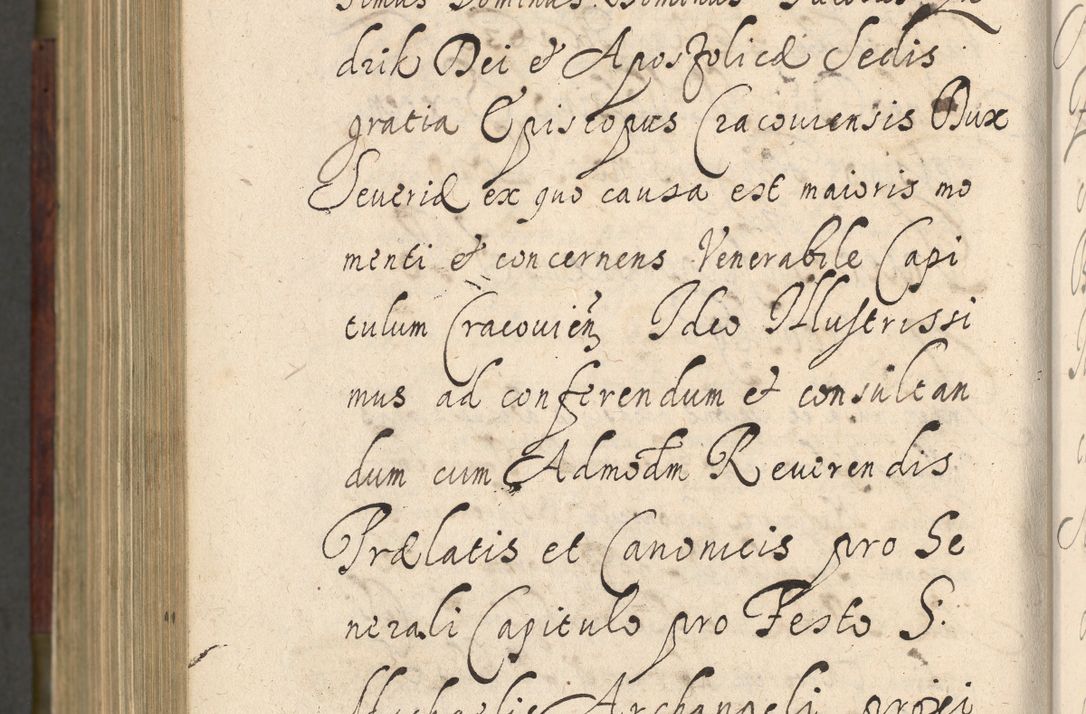 simus Dominus Dominus Jacobus Za
dzik Dei et Apostolicæ Sedis
gratia Episcopus Cracouiensis Dux
Seueriæ ex quo causa est maioris mo
menti et concernens Venerabile Capi
tulum Cracouień Ideo Illustrissi
mus ad conferendum et consultan
dum cum Admodm Reuerendis
Prælatis et Canonicis pro Se
nerali Capitulo pro Festo S.
Michaelis Archangeli proxi